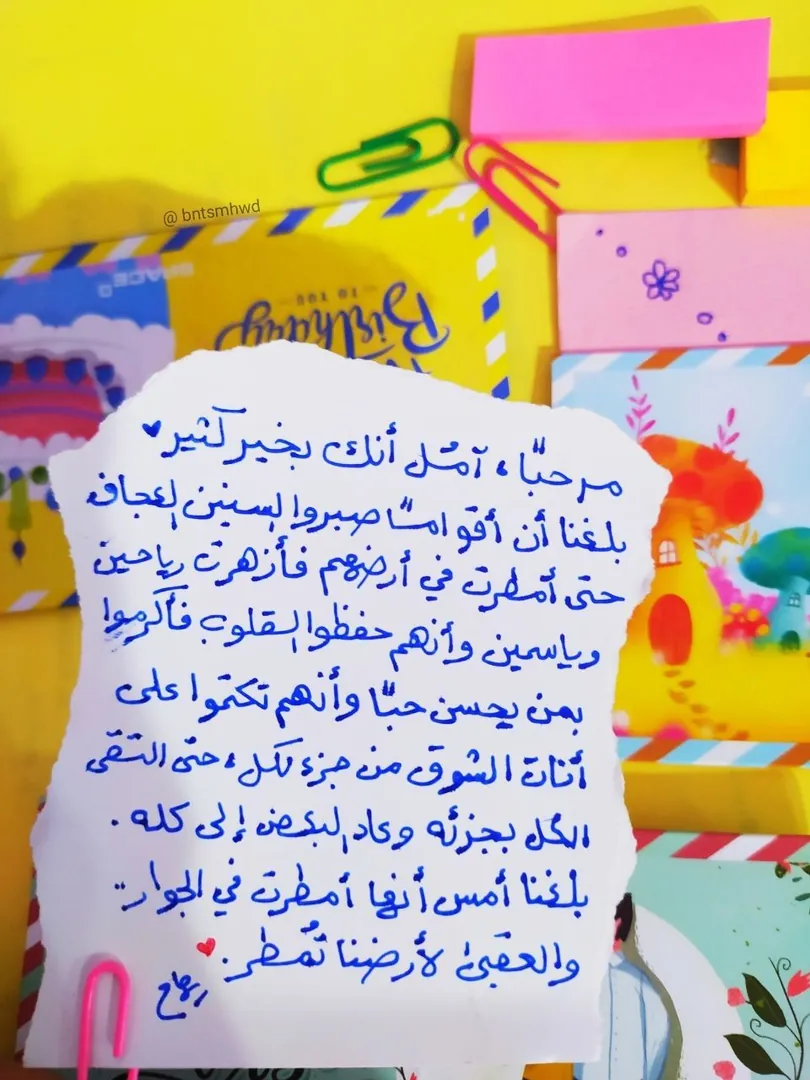 @ bntsmhwd
SPACE
Birthday
TO YOU
مرحبًا، آمُل أنك بخير كثير
بلغنا أن أقوامًا صبروا السنين العجاف
حتى أمطرت في أرضهم فأزهرت رياحين
وياسمين وأنهم حفظوا القلوب فأكرموا
بمن يحسن حبًّا وأنهم تكتموا على
أنات الشوق من جزء لكل، حتى التقى
الكل بجزئه وعاد البعض إلى كله.
بلغنا أمس أنها أمطرت في الجوار..
والعقبىٰ لأرضنا تُمطر.